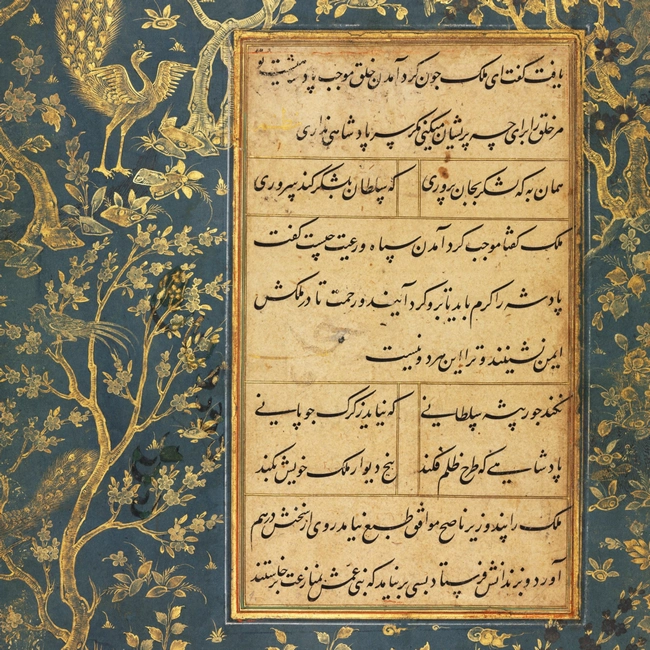 یافت گفت ای ملک چون گرد آمدن خلق موجب پادشاهیست تو
مر خلق را برای چه پریشان میکنی مگر سر پادشاهی نداری
همان به که لشکر بجان پروری که سلطان بلشکر کند سروری
ملک گفتا موجب گرد آمدن سپاه و رعیت چیست گفت
پادشه را کرم باید تا برو گرد آیند و رحمت تا در ملکش
ایمن نشینند و ترا این هر دو نیست
نکند جور پیشه سلطانی که نیاید ز گرگ چوپانی
پادشاهی که طرح ظلم فکند بیخ دیوار ملک خویش بکند
ملک را پند وزیر ناصح موافق طبع نیامد روی از سخنش درهم
آورد و بزندانش فرستاد بسی برنیامد که بنی عمش بمنازعت برخاستند